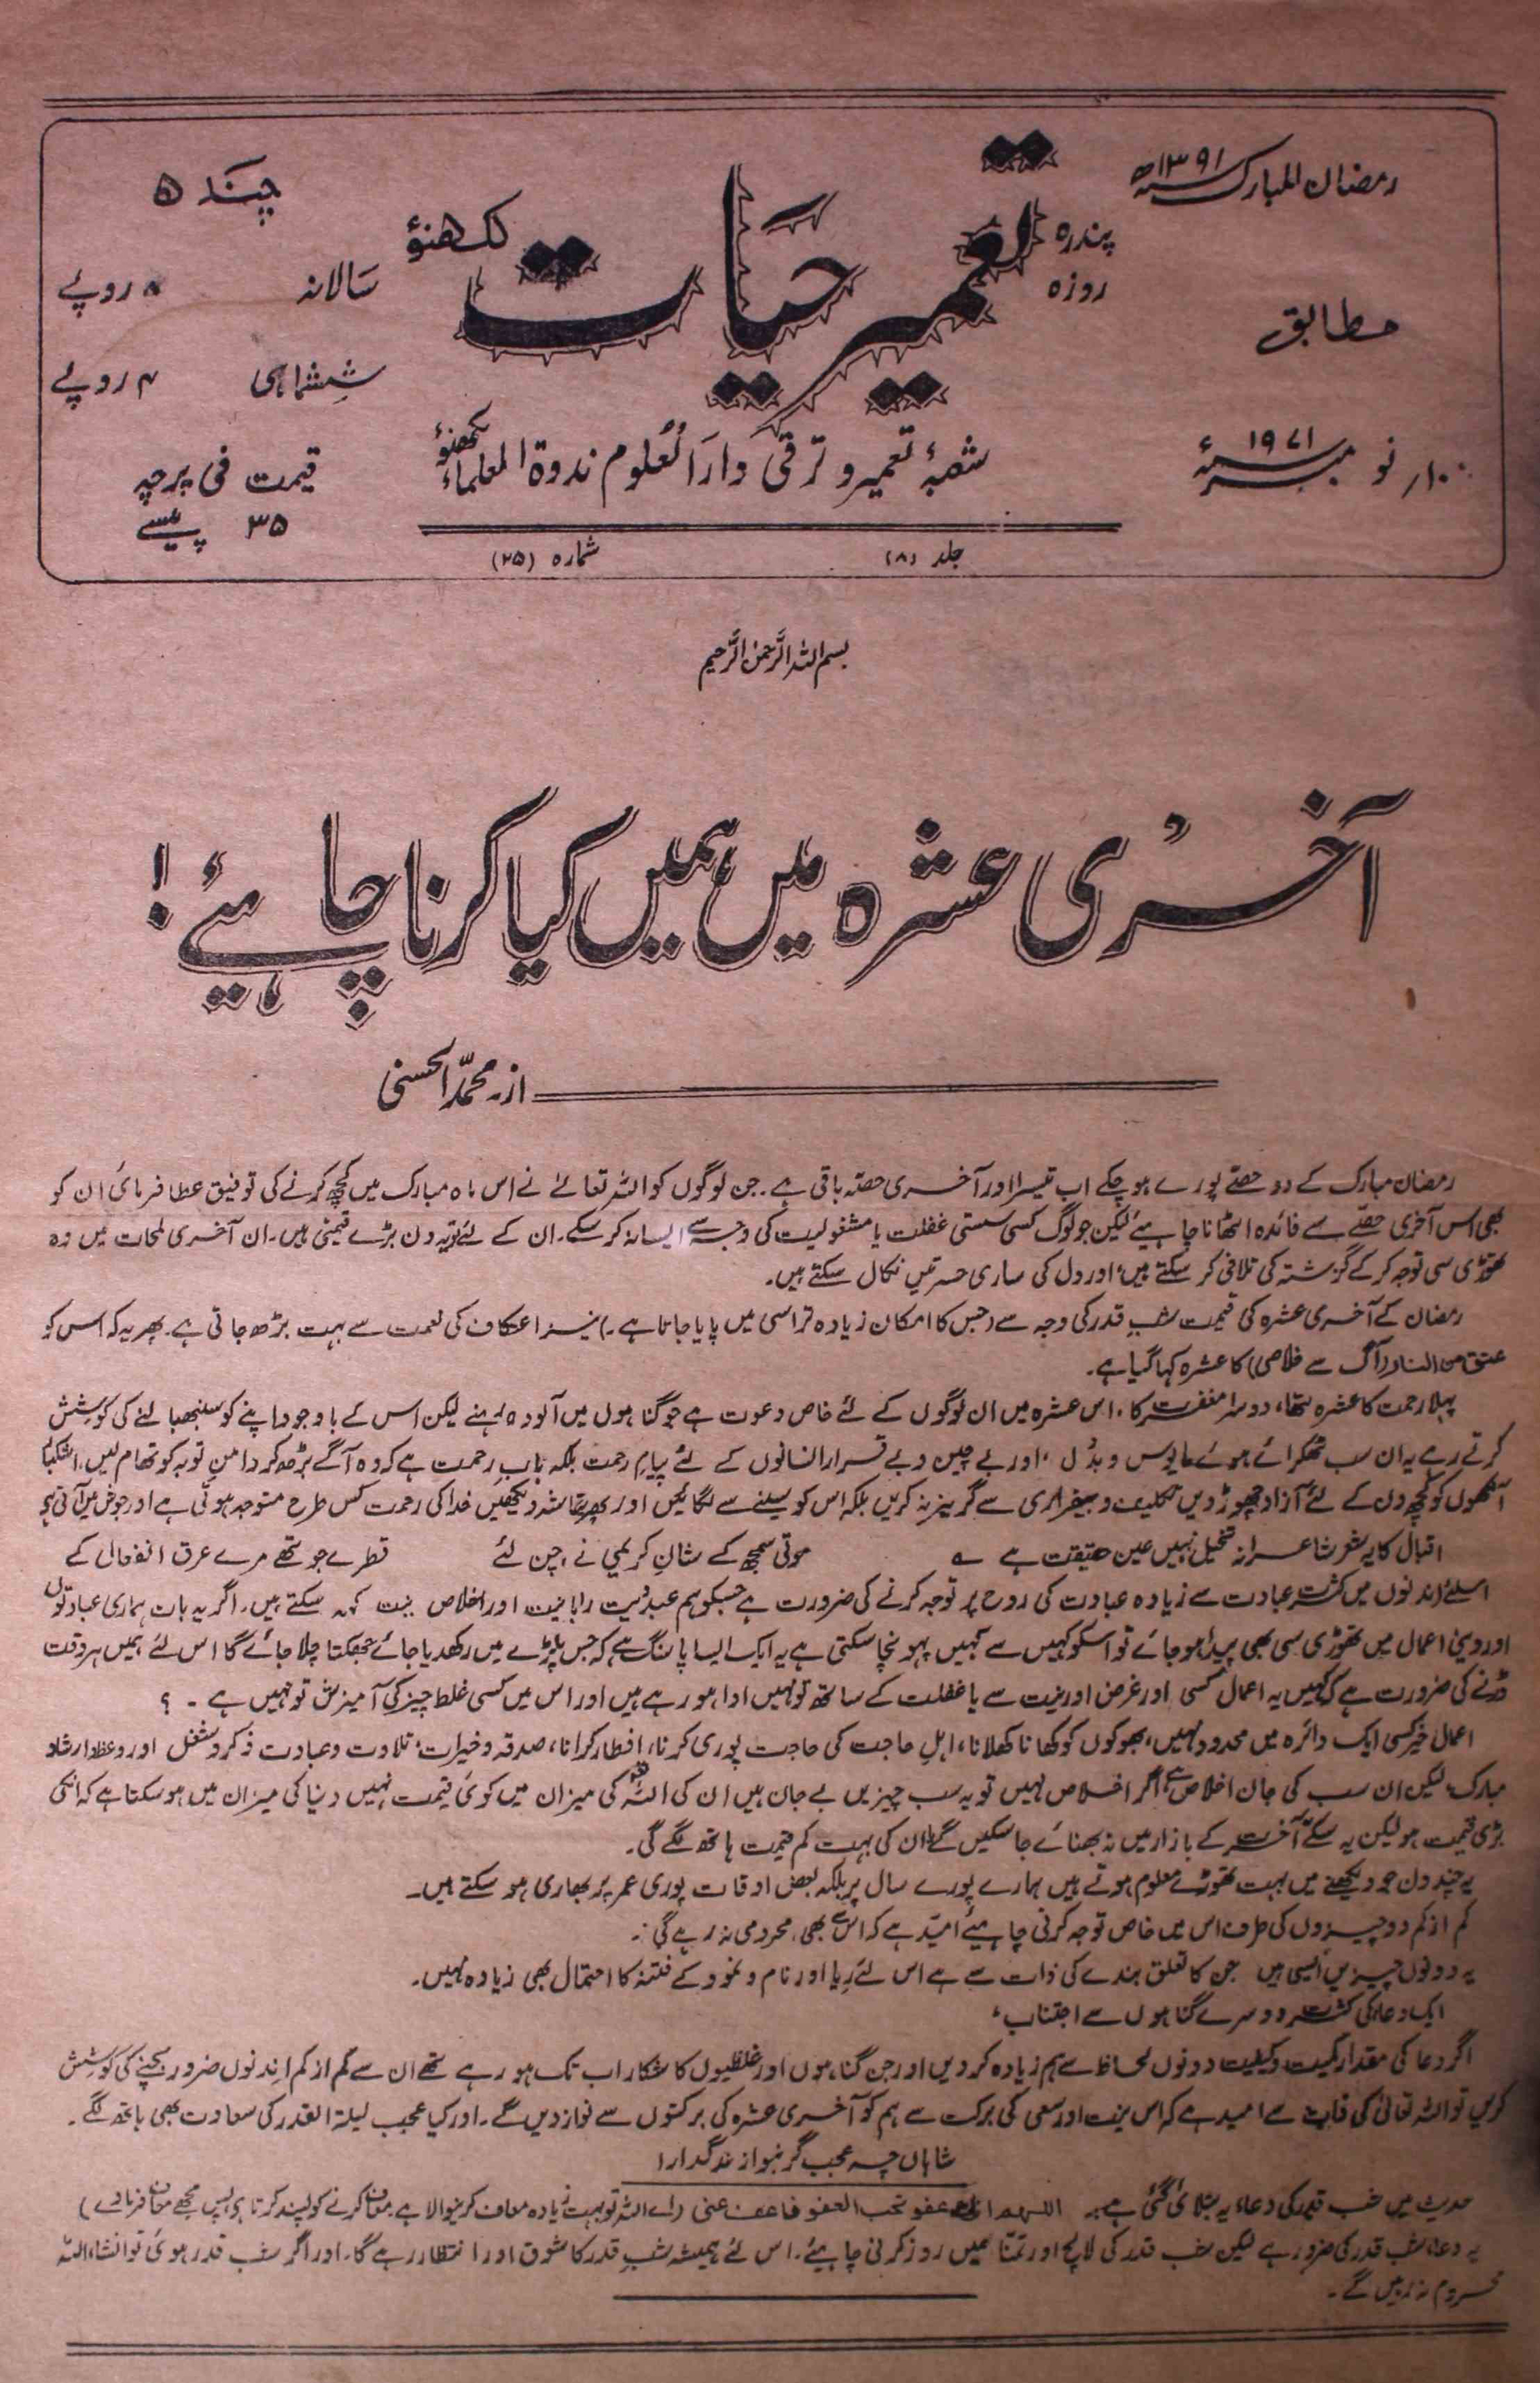 رمضان المبارک ۱۳۹۱ھ
مطابق
۱۰ر نومبر ۱۹۷۱ء
پندرہ روزہ
تعمیر حیات
لکھنؤ
شعبۂ تعمیر و ترقی دارالعلوم ندوۃ العلماء لکھنؤ
جلد (۸) شمارہ (۲۵)
چندہ
سالانہ ۸ روپے
ششماہی ۴ روپے
قیمت فی پرچہ
۳۵ پیسے
بسم اللہ الرحمن الرحیم
آخری عشرہ میں ہمیں کیا کرنا چاہیئے!
از۔ محمد الحسنی
رمضان مبارک کے دو حصے پورے ہو چکے اب تیسرا اور آخری حصتہ باقی ہے۔ جن لوگوں کو اللہ تعالےٰ نے اس ماہ مبارک میں کچھ کرنے کی توفیق عطا فرمائی ان کو
بھی اس آخری حصے سے فائدہ اٹھانا چاہیئے لیکن جو لوگ کسی سستی غفلت یا مشغولیت کی وجہ سے ایسا نہ کر سکے۔ ان کے لئے تو یہ دن بڑے قیمتی ہیں۔ ان آخری لمحات میں وہ
تھوڑی سی توجہ کر کے گزشتہ کی تلافی کر سکتے ہیں، اور دل کی ساری حسرتیں نکال سکتے ہیں۔
رمضان کے آخری عشرہ کی قیمت شبِ قدر کی وجہ سے (جس کا امکان زیادہ تر اسی میں پایا جاتا ہے۔) نیز اعتکاف کی نعمت سے بہت بڑھ جاتی ہے۔ پھر یہ کہ اس کو
عتق من النار (آگ سے خلاصی) کا عشرہ کہا گیا ہے۔
پہلا رحمت کا عشرہ تھا، دوسرا مغفرت کا، اس عشرہ میں ان لوگوں کے لئے خاص دعوت ہے جو گناہوں میں آلودہ رہنے لیکن اس کے باوجود اپنے کو سنبھالنے کی کوشش
کرتے رہے یہ ان سب ٹھکرائے ہوئے مایوس و بددل، اور بے چین و بے قرار انسانوں کے لئے پیام رحمت بلکہ بابِ رحمت ہے کہ وہ آگے بڑھ کر دامنِ توبہ کو تھام لیں، اشکبار
آنکھوں کو کچھ دن کے لئے آزاد چھوڑ دیں تکلیف و بیقراری سے گریز نہ کریں بلکہ اس کو سینے سے لگائیں اور پھر تماشہ دیکھیں خدا کی رحمت کس طرح متوجہ ہوتی ہے اور جوش میں آتی ہے
اقبال کا یہ شعر شاعرانہ تخیل نہیں عین حقیقت ہے ؎ موتی سمجھ کے شانِ کریمی نے چن لئے قطرے جو تھے مرے عرق انفعال کے
اسلئے ان دنوں میں کثرت عبادت سے زیادہ عبادت کی روح پر توجہ کرنے کی ضرورت ہے جسکو ہم عبدیت انابت اور اخلاص نیت کہہ سکتے ہیں۔ اگر یہ بات ہماری عبادتوں
اور دینی اعمال میں تھوڑی سی بھی پیدا ہو جائے تو اسکو کہیں سے کہیں پہونچا سکتی ہے یہ ایک ایسا پاسنگ ہے کہ جس پلڑے میں رکھدیا جائے جھکتا چلا جائے گا اس لئے ہمیں ہر وقت
ڈرنے کی ضرورت ہے کہ کہیں یہ اعمال کسی اور غرض اور نیت سے یا غفلت کے ساتھ تو نہیں ادا ہو رہے ہیں اور اس میں کسی غلط چیز کی آمیزش تو نہیں ہے۔ ؟
اعمال خیر کسی ایک دائرہ میں محدود نہیں، بھوکوں کو کھانا کھلانا، اہلِ حاجت کی حاجت پوری کرنا، افطار کرانا، صدقہ و خیرات، تلاوت و عبادت ذکر و شغل اور وعظ و ارشاد
مبارک، لیکن ان سب کی جان اخلاص ہے، اگر اخلاص نہیں تو یہ سب چیزیں بے جان ہیں ان کی اللہ کی میزان میں کوئی قیمت نہیں دنیا کی میزان میں ہو سکتا ہے کہ انکی
بڑی قیمت ہو لیکن یہ سکے آخرت کے بازار میں نہ بھنائے جا سکیں گے، ان کی بہت کم قیمت ہاتھ لگے گی۔
یہ چند دن جو دیکھنے میں بہت تھوڑے معلوم ہوتے ہیں ہمارے پورے سال پر بلکہ بعض اوقات پوری عمر پر بھاری ہو سکتے ہیں۔
کم از کم دو چیزوں کی طرف اس میں خاص توجہ کرنی چاہیئے امیّد ہے کہ اس سے بھی محرومی نہ رہے گی۔
یہ دونوں چیزیں ایسی ہیں جن کا تعلق بندے کی ذات سے ہے اس لئے ریا اور نام و نمود کے فتنہ کا احتمال بھی زیادہ نہیں۔
ایک دعا کی کثرت، دوسرے گناہوں سے اجتناب،
اگر دعا کی مقدار کمیت و کیفیت دونوں لحاظ سے ہم زیادہ کر دیں اور جن گناہوں اور غلطیوں کا شکار اب تک ہو رہے تھے ان سے کم از کم اِن دنوں ضرور بچنے کی کوشش
کریں تو اللہ تعالیٰ کی ذات سے امید ہے کہ اس نیت اور سعی کی برکت سے ہم کو آخری عشرہ کی برکتوں سے نوازدیں گے۔ اور کیا عجب لیلۃ القدر کی سعادت بھی ہاتھ لگے۔
شاہاں چہ عجب گر بنوازند گدارا
حدیث میں شب قدر کی دعاء یہ بتلائی گئی ہے۔ اللہم انک عفو تحب العفو فاعف عنی (اے اللہ تو بہت زیادہ معاف کرنیوالا ہے معاف کرنے کو پسند کرتا ہے پس مجھے معاف فرمادے)
یہ دعا شب قدر کی ضرور ہے لیکن شب قدر کی لالچ اور تمنّا ہمیں روز کرنی چاہیئے۔ اس لئے ہمیشہ شبِ قدر کا شوق اور انتظار رہے گا، اور اگر شب قدر ہوئی تو انشاء اللہ
محروم نہ رہیں گے۔